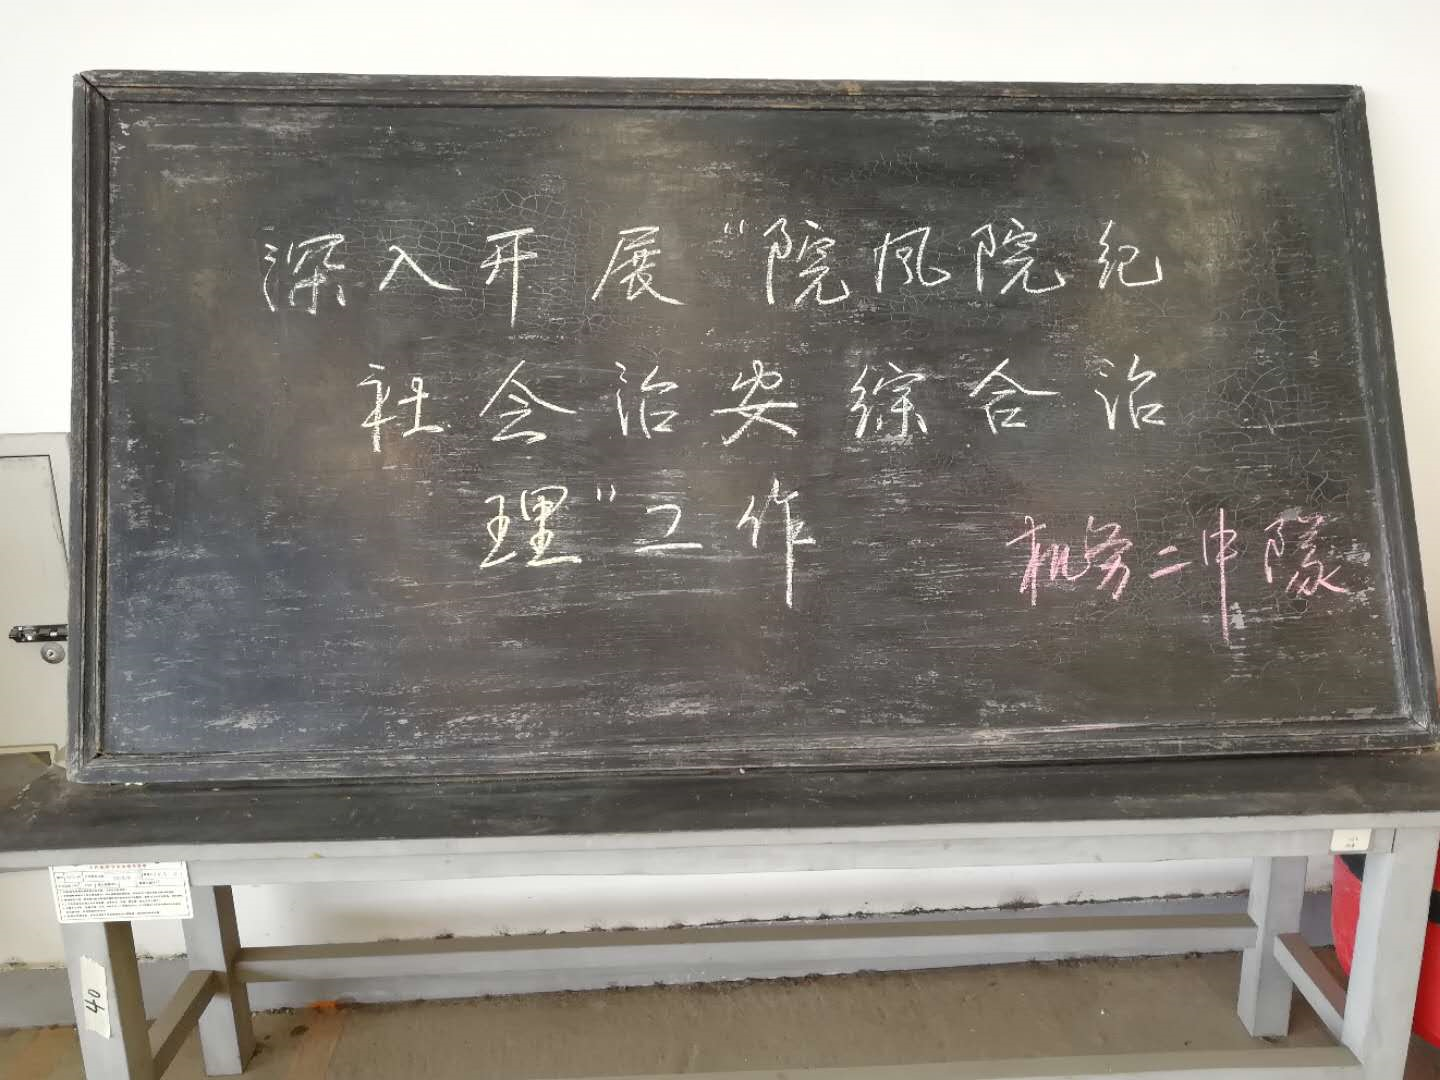 深入开展“院风院纪
社会治安综合治
理”工作
机务二中队
40